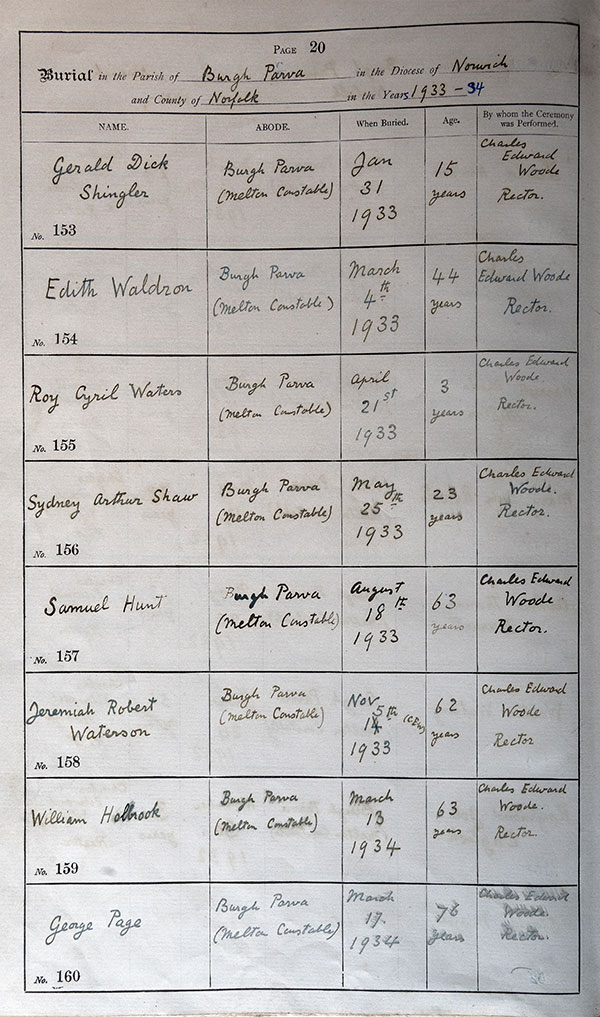 PAGE 20
Burial in the Parish of Burgh Parva in the Diocese of Norwich
and County of Norfolk in the Years 1933 - 34
NAME. ABODE. When Buried. Age. By whom the Ceremony was Performed.
Gerald Dick
Shingler
No. 153
Burgh Parva
(Melton Constable)
Jan
31
1933
15
years
Charles
Edward
Woode
Rector.
Edith Waldron
No. 154
Burgh Parva
(Melton Constable)
March
4th
1933
44
years
Charles
Edward Woode
Rector.
Roy Cyril Waters
No. 155
Burgh Parva
(Melton Constable)
April
21st
1933
3
years
Charles Edward
Woode
Rector.
Sydney Arthur Shaw
No. 156
Burgh Parva
(Melton Constable)
May
25th
1933
23
years
Charles Edward
Woode.
Rector.
Samuel Hunt
No. 157
Burgh Parva
(Melton Constable)
August
18th
1933
63
years
Charles Edward
Woode
Rector.
Jeremiah Robert
Waterson
No. 158
Burgh Parva
(Melton Constable)
Nov
5th
1933
62
years
Charles Edward
Woode
Rector
William Holbrook
No. 159
Burgh Parva
(Melton Constable)
March
13
1934
63
years
Charles Edward
Woode.
Rector.
George Page
No. 160
Burgh Parva
(Melton Constable)
March
17.
1934
76
years
Charles Edward
Woode.
Rector.